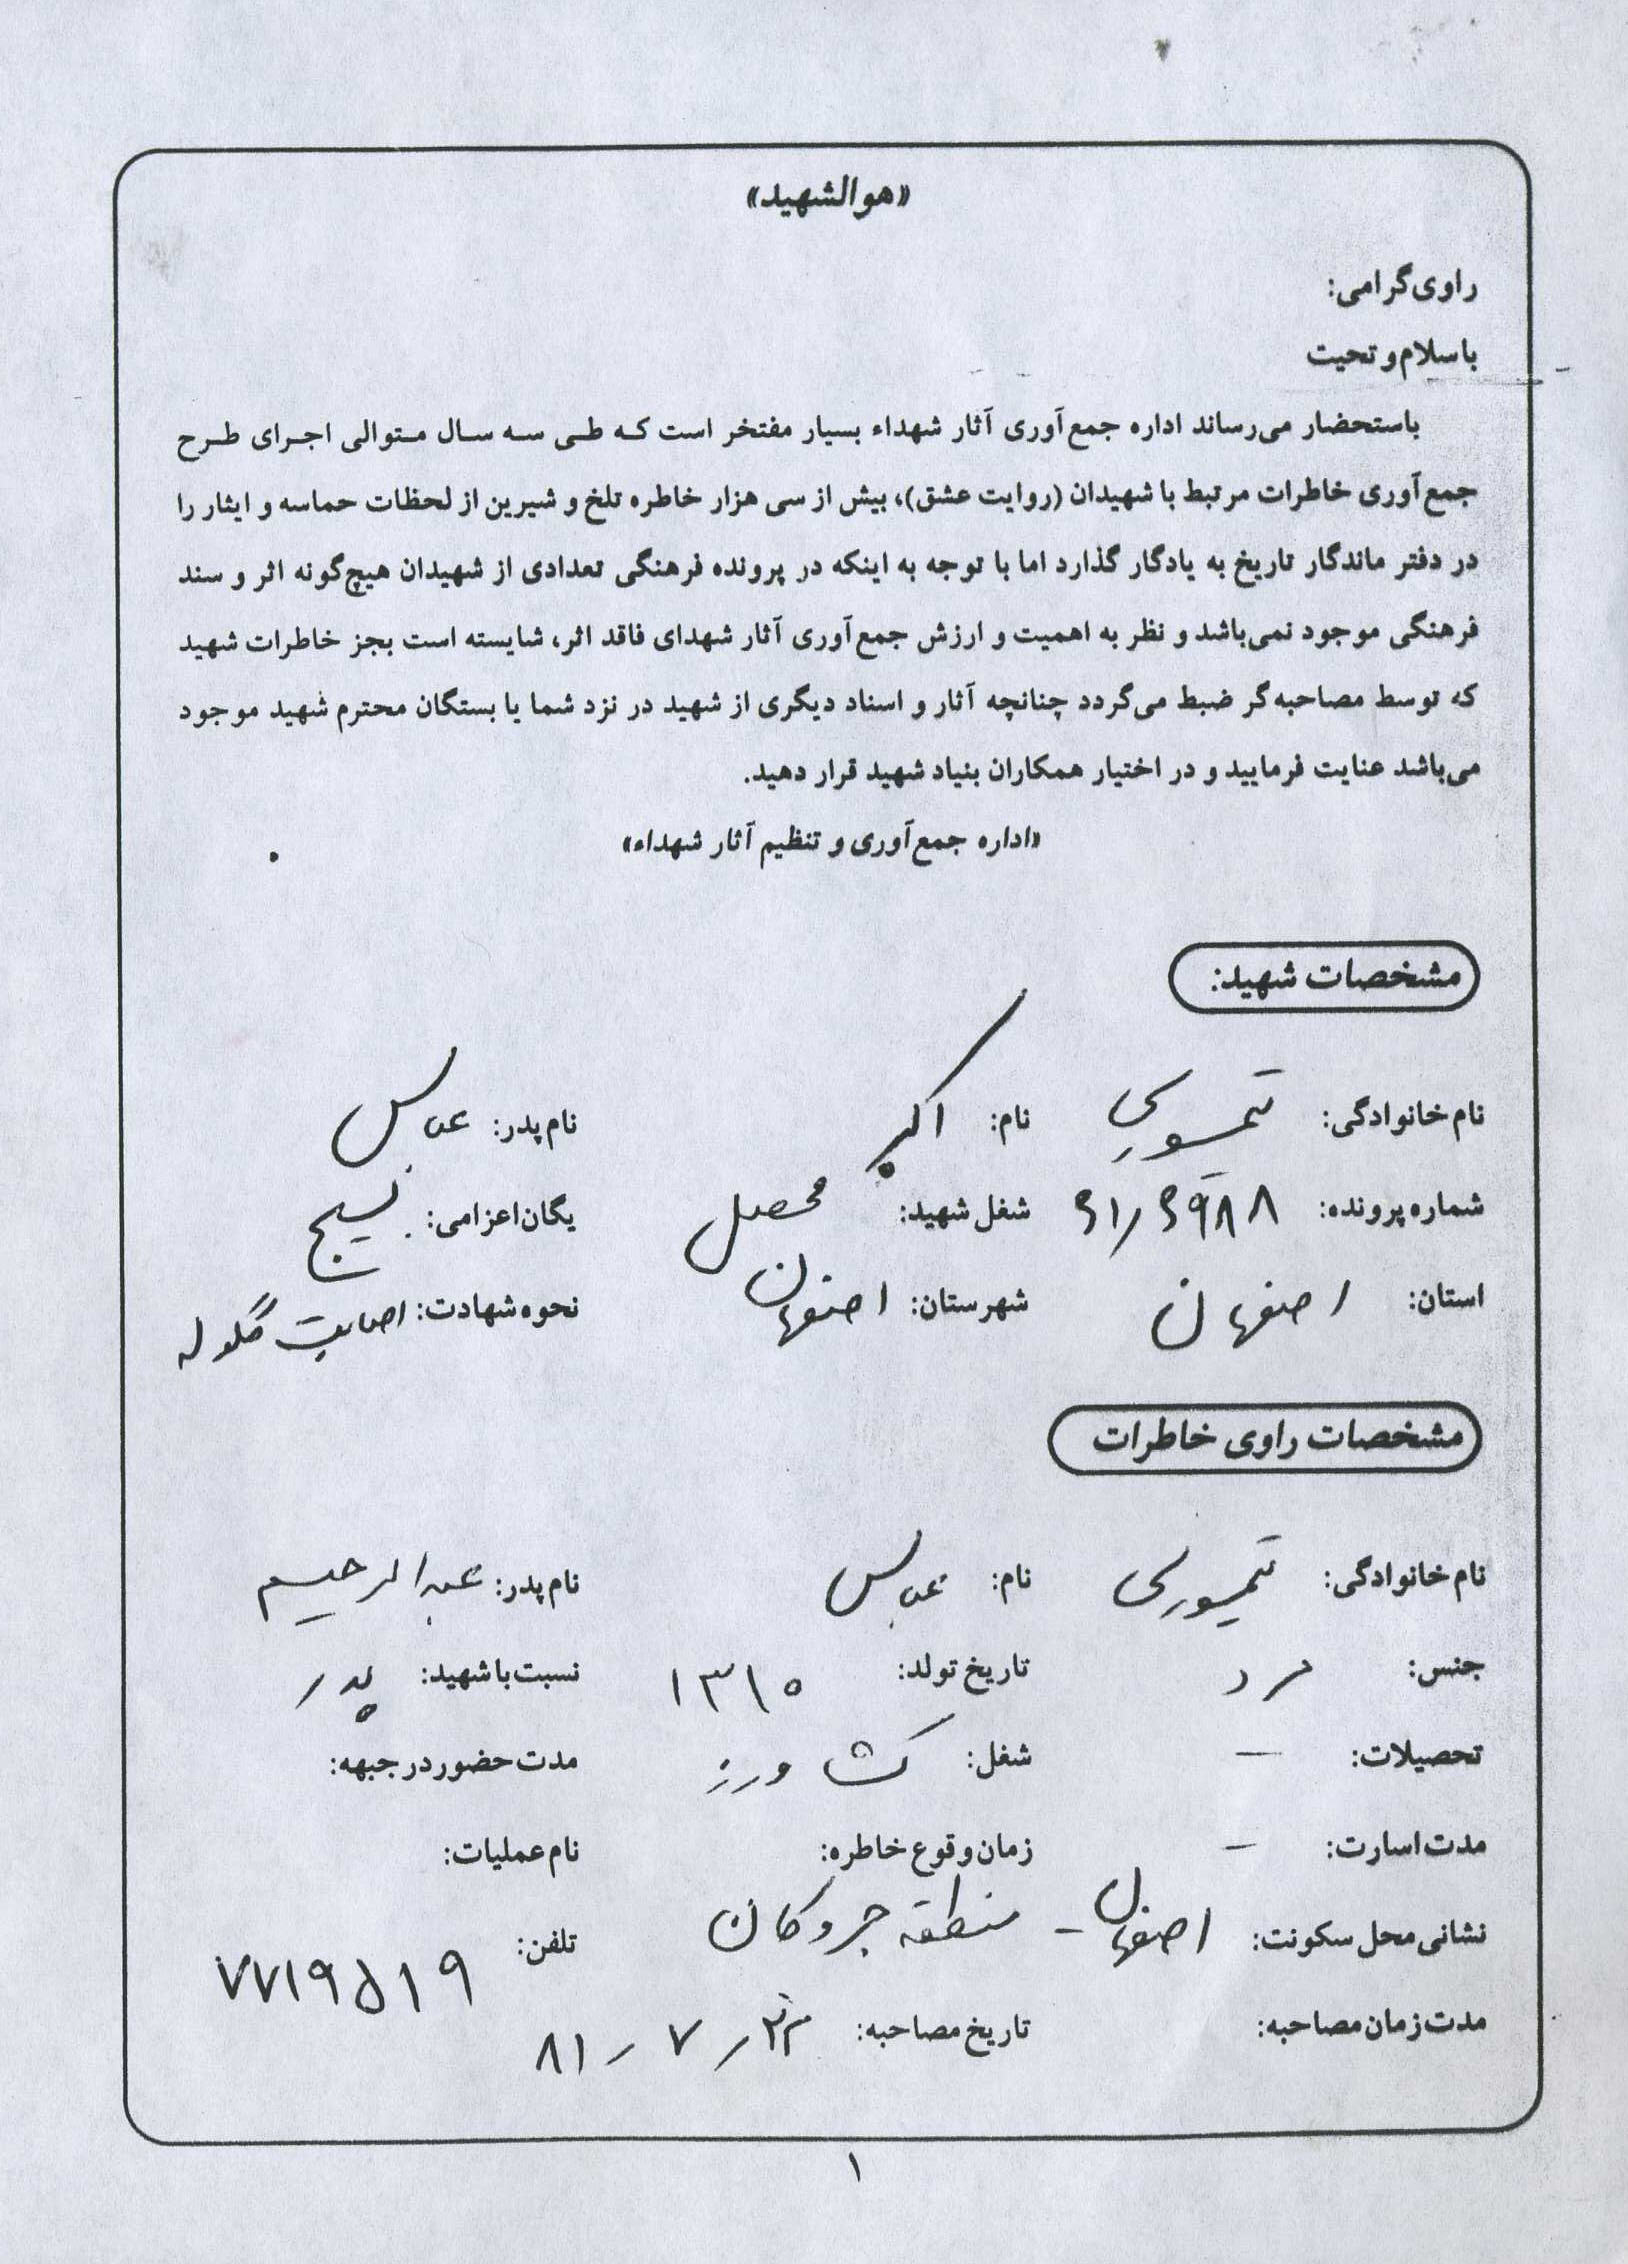 «هوالشهید»
راوی گرامی:
با سلام و تحیت
باستحضار می‌رساند اداره جمع‌آوری آثار شهداء بسیار مفتخر است که طی سه سال متوالی اجرای طرح
جمع‌آوری خاطرات مرتبط با شهیدان (روایت عشق)، بیش از سی هزار خاطره تلخ و شیرین از لحظات حماسه و ایثار را
در دفتر ماندگار تاریخ به یادگار گذارد اما با توجه به اینکه در پرونده فرهنگی تعدادی از شهیدان هیچ‌گونه اثر و سند
فرهنگی موجود نمی‌باشد و نظر به اهمیت و ارزش جمع‌آوری آثار شهدای فاقد اثر، شایسته است بجز خاطرات شهید
که توسط مصاحبه‌گر ضبط می‌گردد چنانچه آثار و اسناد دیگری از شهید در نزد شما یا بستگان محترم شهید موجود
می‌باشد عنایت فرمایید و در اختیار همکاران بنیاد شهید قرار دهید.
«اداره جمع‌آوری و تنظیم آثار شهداء»
مشخصات شهید:
نام خانوادگی: تیموری نام: اکبر نام پدر: عباس
شماره پرونده: ۶۱٫۶۹۸۸ شغل شهید: محصل یگان اعزامی: بسیج
استان: اصفهان شهرستان: اصفهان نحوه شهادت: اصابت گلوله
مشخصات راوی خاطرات
نام خانوادگی: تیموری نام: عباس نام پدر: عبدالرحیم
جنس: مرد تاریخ تولد: ۱۳۱۰ نسبت با شهید: پدر
تحصیلات: – شغل: کشاورز مدت حضور در جبهه:
مدت اسارت: – زمان وقوع خاطره: نام عملیات:
نشانی محل سکونت: اصفهان – منطقه جروکان تلفن: ۷۷۱۹۵۱۹
مدت زمان مصاحبه: تاریخ مصاحبه: ۲۳ ر ۷ ر ۸۱
۱